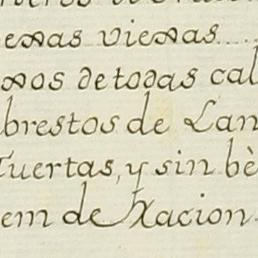 enas viexas
nos detodas cal
brestos de Lan
Tuertas, y sin bè
em de Nacion